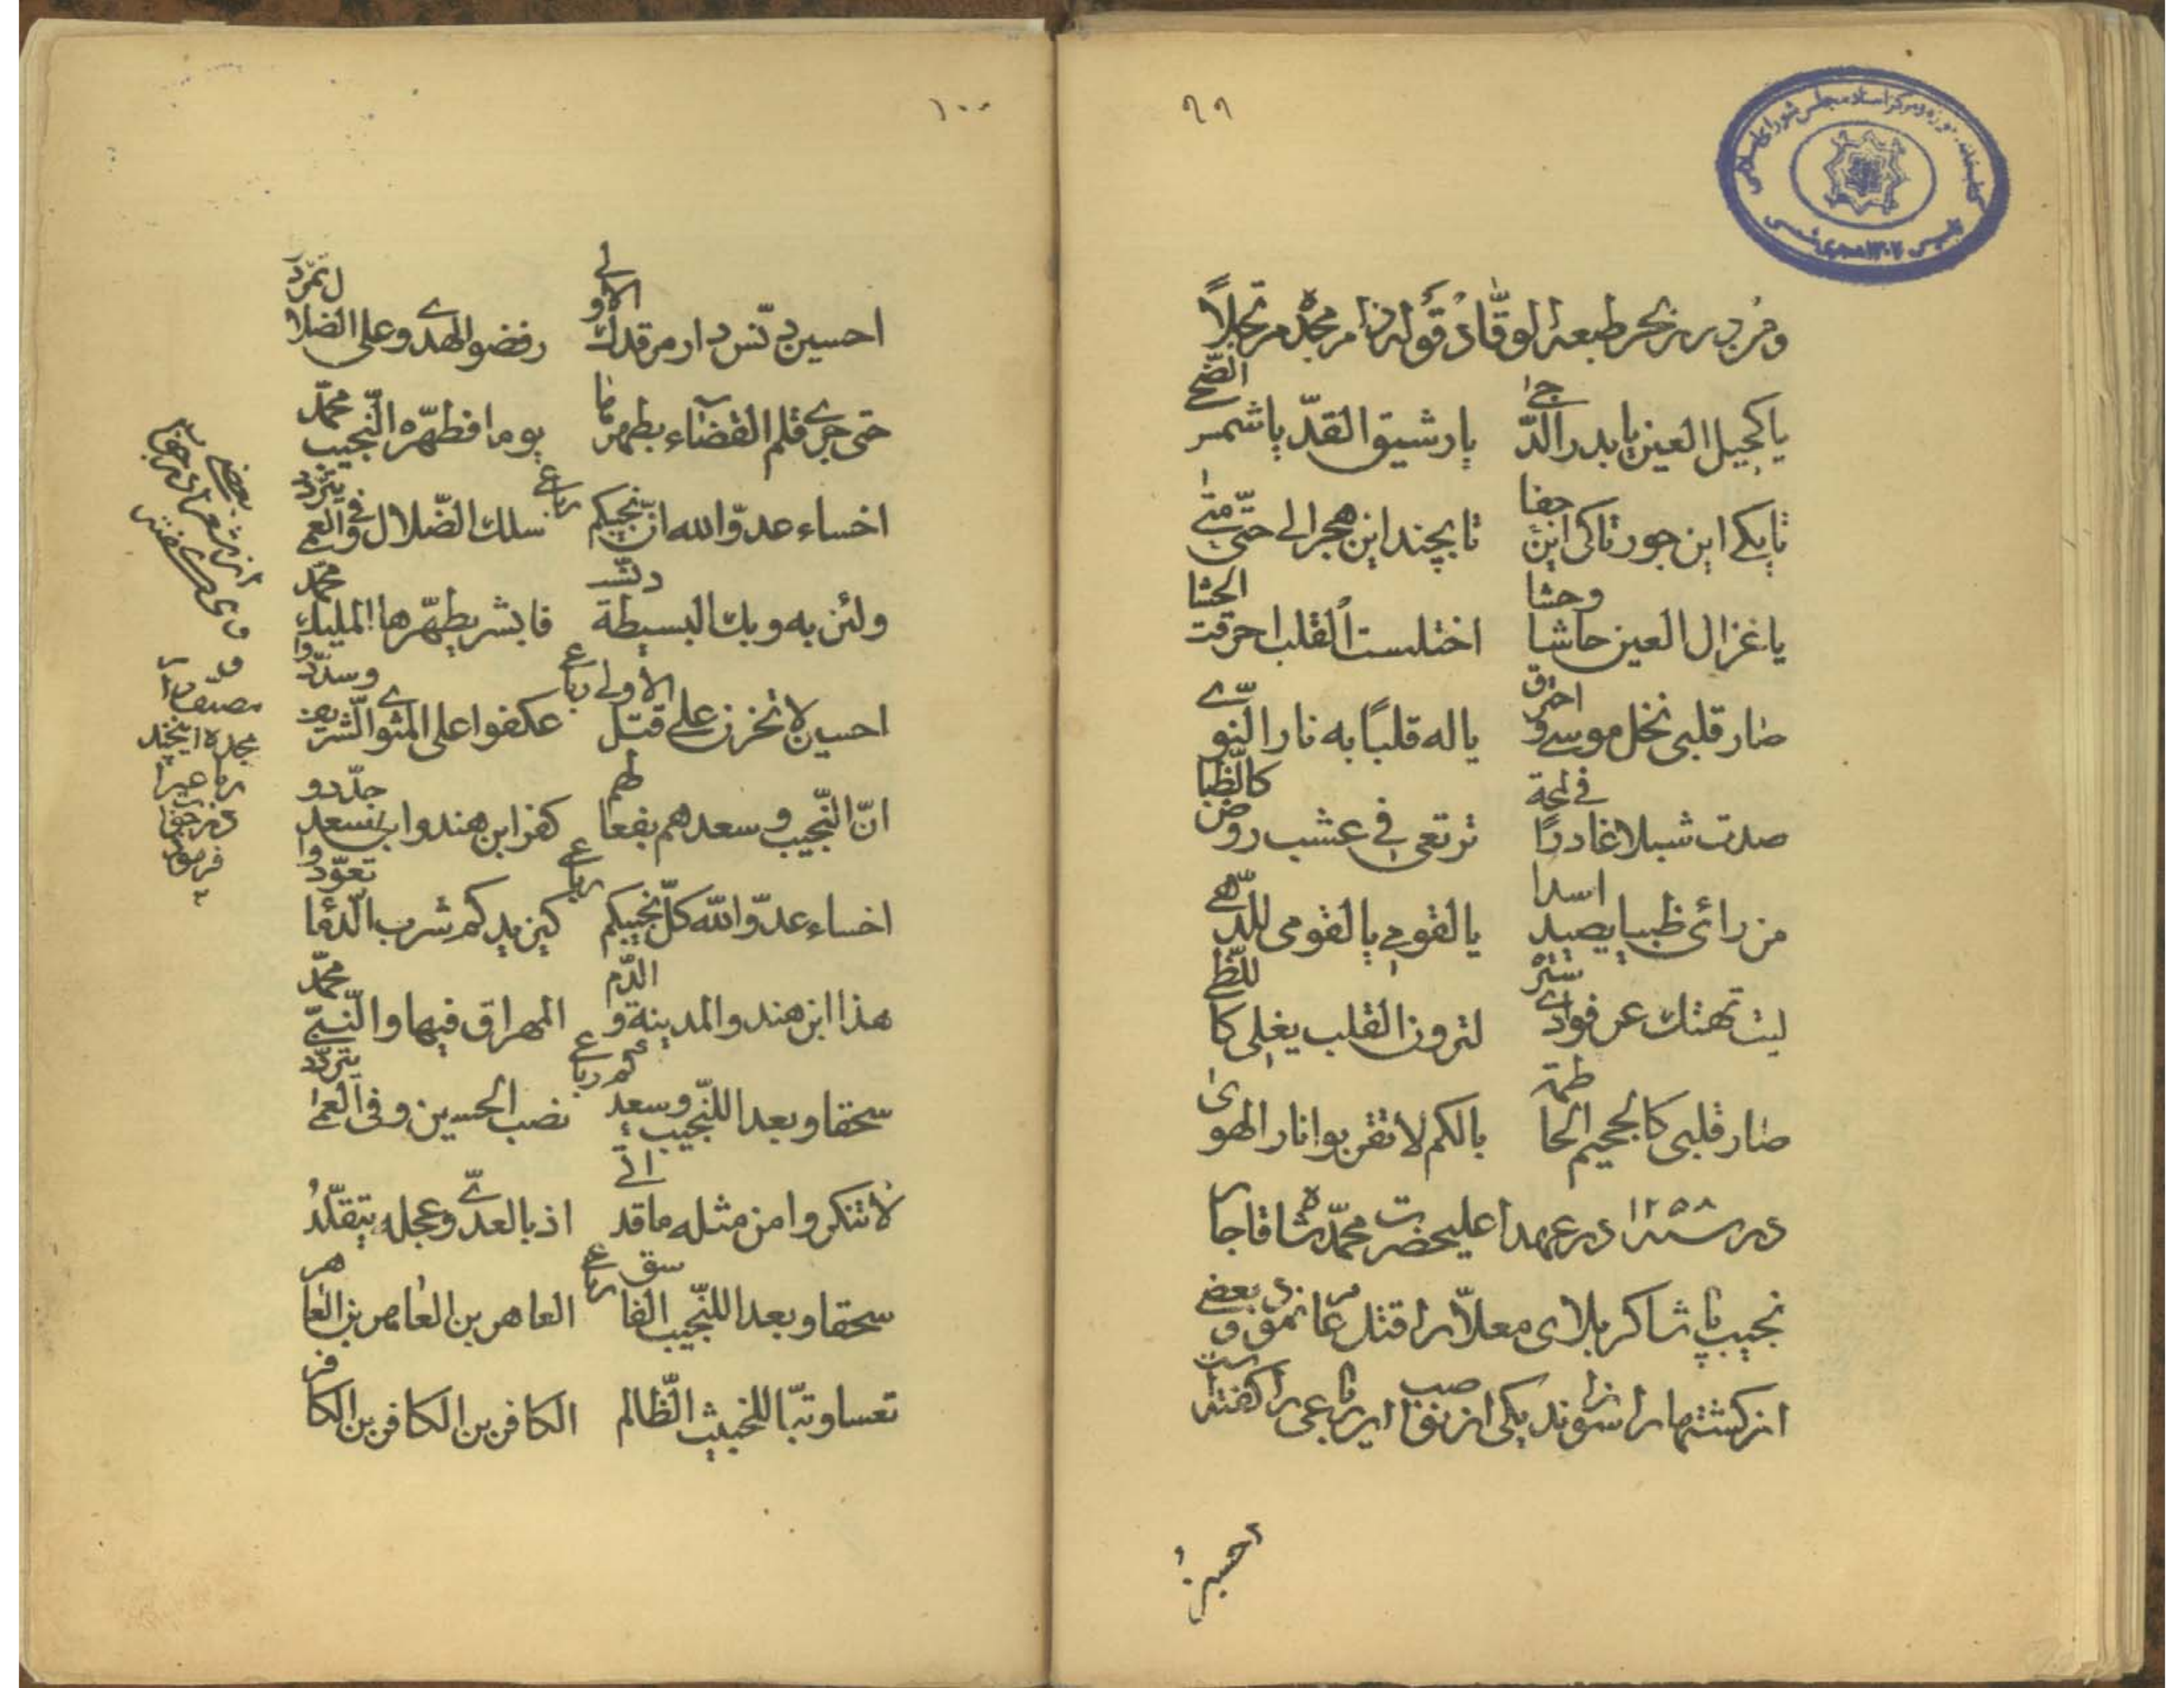 ۹۹
کتابخانه، موزه و مرکز اسناد مجلس شورای اسلامی
تاسیس ۱۳۰۲ هجری شمسی
ومن درر بحر طبعه الوقّاد قوله دام مجده مرتجلاً
یا کحیل العین یا بدر الدّجی یا رشیق القدّ یا شمس الضّحی
تا بکی این جور تا کی این جفا تا بچند این هجر الی حتّی متی
یا غزال العین حاشا وحشا اختلست القلب احرقت الحشا
صار قلبی نخل موسی واحترق یا له قلبًا به نار النوی
صدت شبلا غادرًا فی لمحة ترتعی فی عشب روض کالظّبا
من رائی ظبیا یصید اسدا یا لقومی یا لقومی للدّهی
لیت تهتک عن فوادی ستره لترون القلب یغلی کاللّظی
صار قلبی کالجحیم الحاطمة یا لکم لا تقربوا نار الهوی
در سنه ۱۲۵۸ در عهد اعلیحضرت محمّد شاه قاجار
نجیب پاشا کربلای معلّا را قتل عام نمود و بعضی
از کشتها را سوزاند یکی از نصاب این رباعی را گفته است
احسین
۱۰۰
احسین دنّس دار مرقدک الاولی رفضوا الهدی وعلی الضلال تمرّد
حتی جری قلم القضاء بطهرها یوما فطهّره النّجیب محمّد
رباعی
اخساء عدوّ الله انّ نجیبکم سلک الضّلال وفی العمی یتردّد
ولئن به وبک البسیطة دنّست فابشر یطهّرها الملیک محمّد
رباعی
احسین لا تحزن علی قتل الاولی عکفوا علی المثوی الشریف وسدّدوا
انّ النّجیب وسعدهم بفعالهم کفر ابن هند وابن سعد جدّدو
رباعی
اخساء عدوّ الله کلّ نجیبکم کیزیدکم شرب الدّما تعوّدوا
هذا ابن هند والمدینة والدّم المهراق فیها والنّبیّ محمّد
رباعی
سحقا وبعدا للنّجیب وسعدکم نصب الحسین وفی العمی یتردّد
لا تنکروا من مثله ما قد اتی اذ بالعدیّ وعجله یتقلّد
رباعی
سحقا وبعدا للنّجیب الفاسق العاهر بن العاهر بن العاهر
تعسا وتبّا للخبیث الظّالم الکافر بن الکافر بن الکافر
بعضی
از شعرای
مصنف را
مجده
فرموده